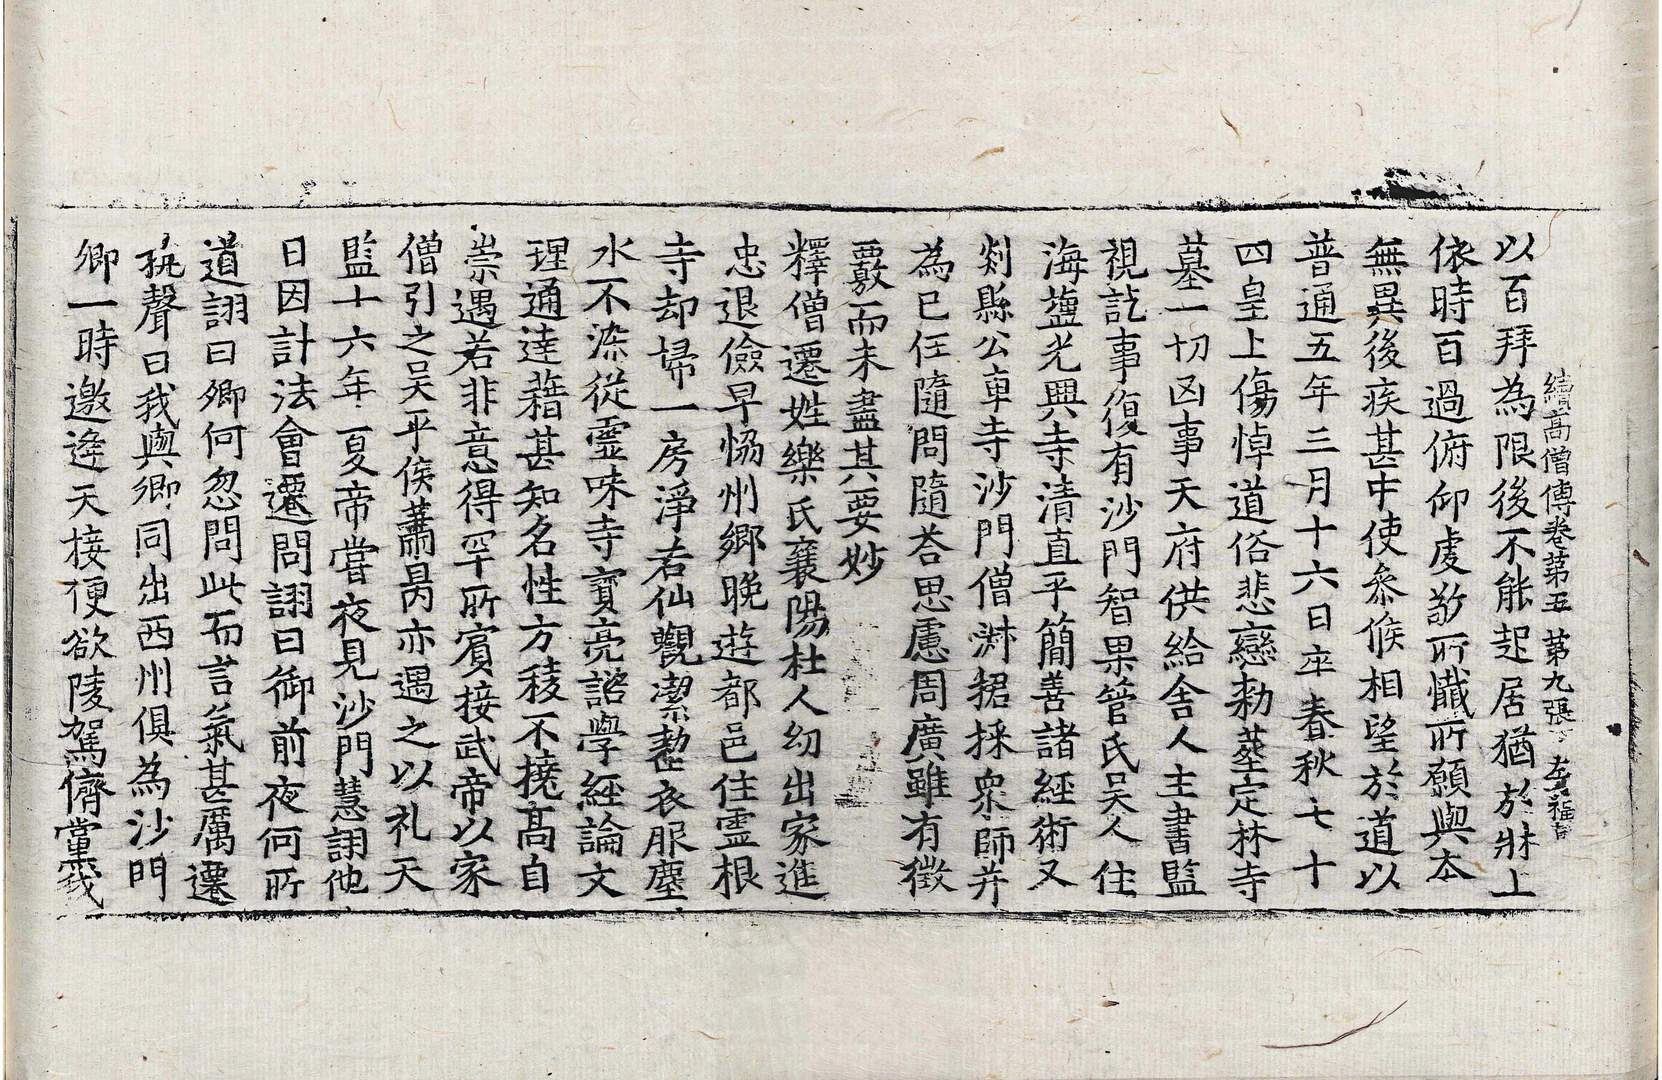 續高僧傳卷苐五　苐九張　李福吉
以百拜爲限後不能起居猶於牀上
依時百過俯仰虔敬所懺所願與本
無異後疾甚中使叅候相望於道以
普通五年三月十六日卒春秋七十
四皇上傷悼道俗悲戀勑葬定林寺
墓一切凶事天府供給舍人主書監
視訖事復有沙門智果管氏吴人住
海鹽光興寺清直平簡善諸經術又
剡縣公車寺沙門僧淋捃採衆師并
爲已任隨問隨荅思慮周廣雖有徵
覈而未盡其要妙
釋僧遷姓樂氏襄陽杜人幼出家進
忠退儉早恊州鄉晚遊都邑住靈根
寺却掃一房淨若仙觀潔整衣服塵
水不染從靈味寺寶亮諮學經論文
理通達藉甚知名性方稜不撓高自
崇遇若非意得罕所賓接武帝以家
僧引之吴平侯蕭昺亦遇之以礼天
監十六年夏帝嘗夜見沙門慧詡他
日因計法會遷問詡曰御前夜何所
道詡曰卿何忽問此而言氣甚厲遷
抗聲曰我與卿同出西州俱爲沙門
卿一時邀逢天接便欲陵駕儕黨我